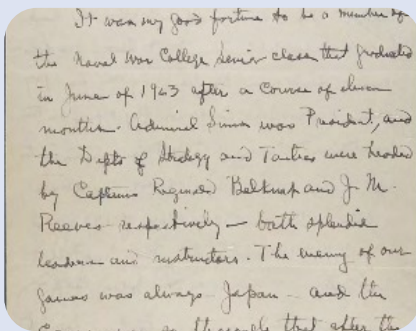 It was my good fortune to be a member of
the Naval War College Senior class that graduated
in June of 1923 after a Course of eleven
months. Admiral Sims was President, and
the Depts of Strategy and Tactics were headed
by Captains Reginald Belknap and J. M.
Reeves respectively — both splendid
leaders and instructors. The enemy of our
games was always — Japan — and the
so thorough that after the